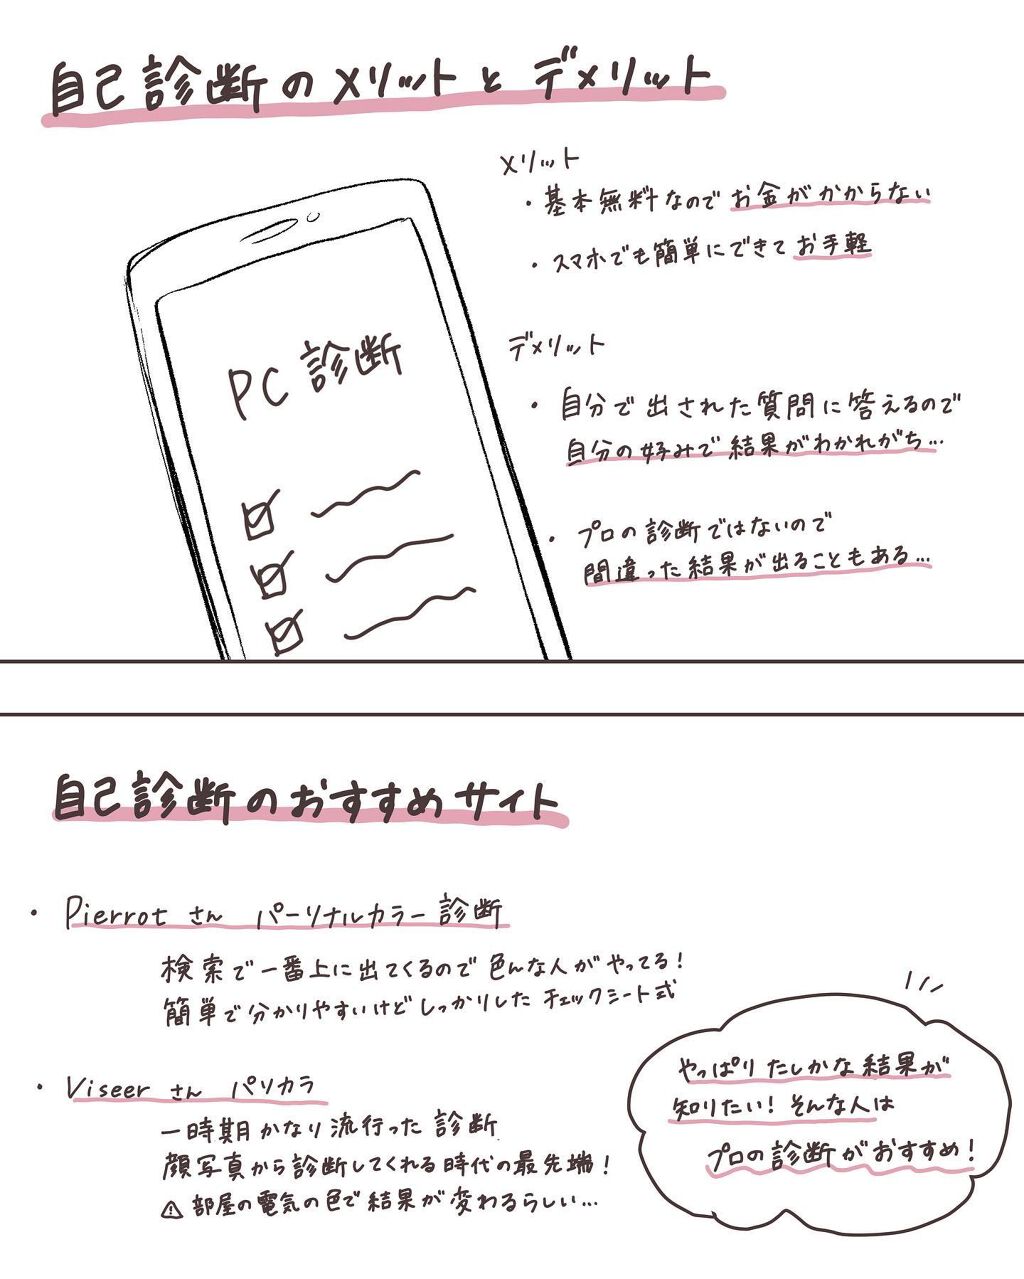 自己診断のメリットとデメリット
メリット
・基本無料なのでお金がかからない
・スマホでも簡単にできてお手軽
PC診断
デメリット
・自分で出された質問に答えるので
自分の好みで結果がわかれがち…
・プロの診断ではないので
間違った結果が出ることもある…
自己診断のおすすめサイト
・Pierrotさん パーソナルカラー診断
検索で一番上に出てくるので色んな人がやってる！
簡単で分かりやすいけどしっかりしたチェックシート式
・Viseerさん パソカラ
一時期かなり流行った診断
顔写真から診断してくれる時代の最先端！
⚠部屋の電気の色で結果が変わるらしい…
やっぱりたしかな結果が
知りたい！そんな人は
プロの診断がおすすめ！